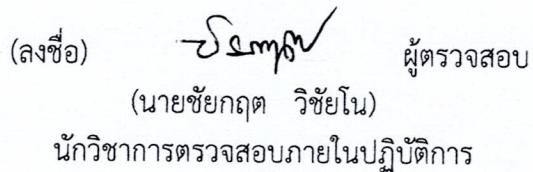 (ลงชื่อ) ชัยกฤต ผู้ตรวจสอบ
(นายชัยกฤต วิชัยโน)
นักวิชาการตรวจสอบภายในปฏิบัติการ